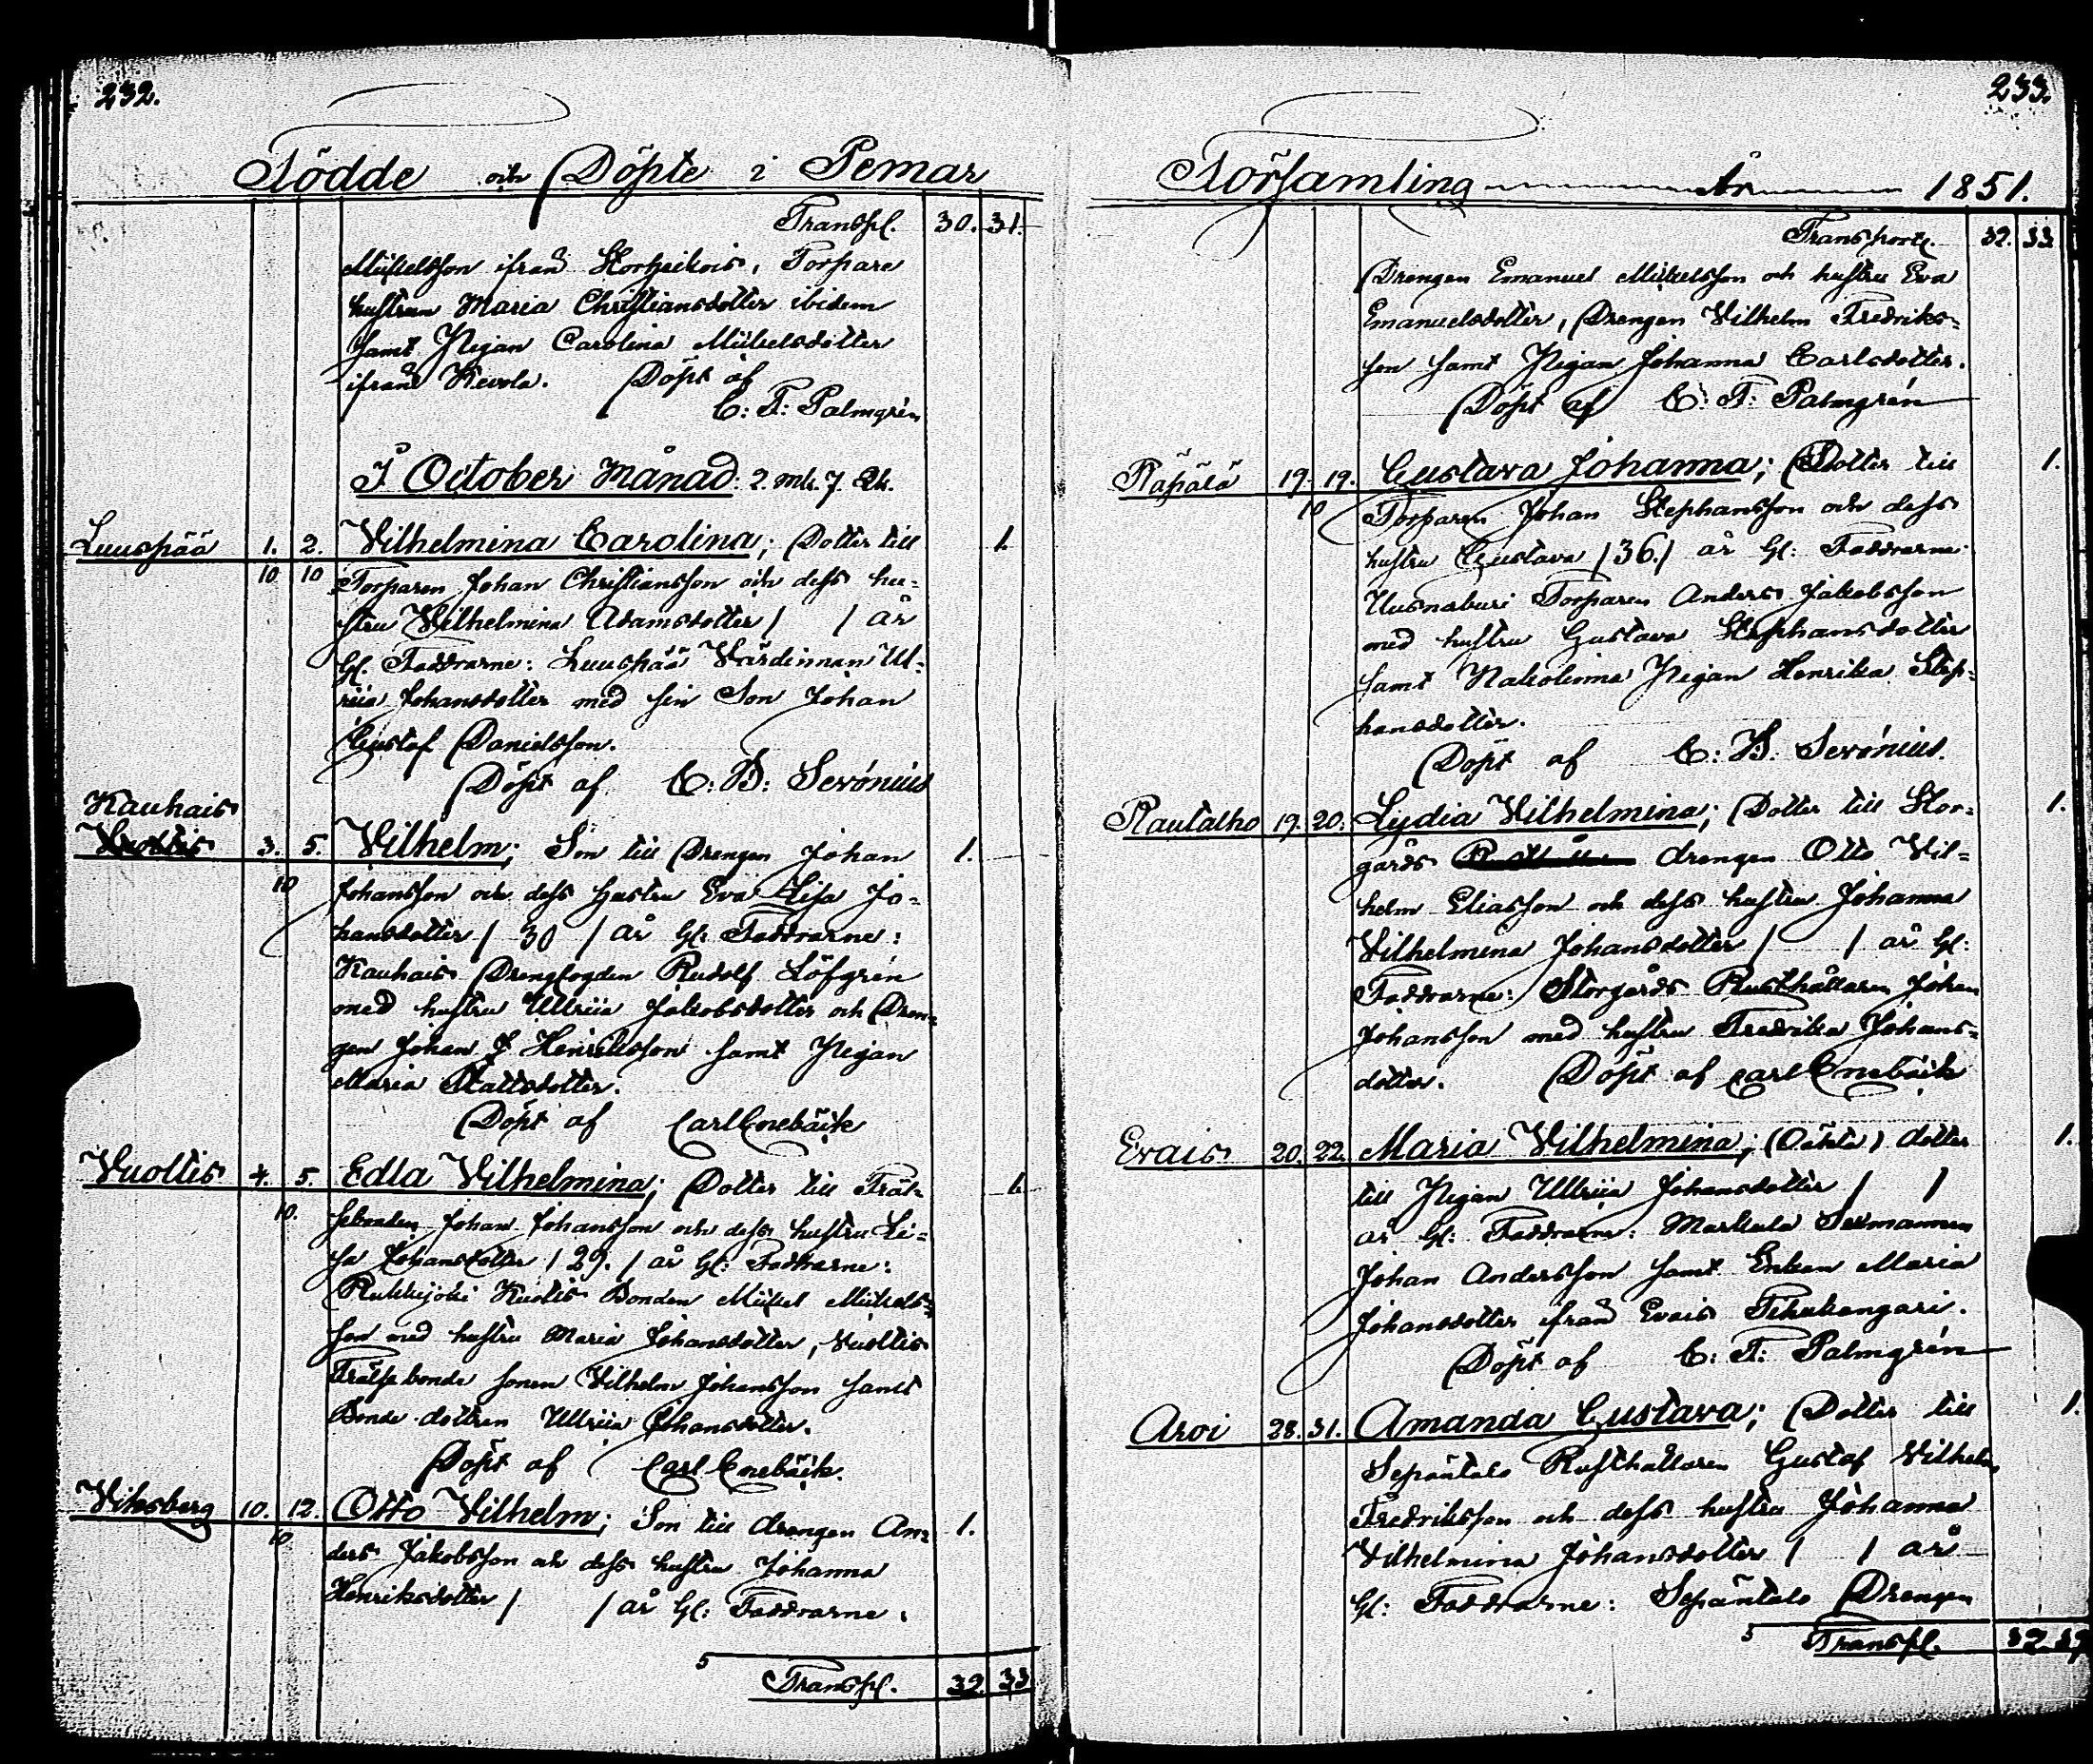 232.
Födde och Döpte i Pemar
Transpt. 30. 31.
Mickelsson ifrån Korpeikois, Torpare
hustrun Maria Christiansdotter ibidem
samt Pigan Carolina Mickelsdotter
ifrån Kevola. Döpt af
C: F: Palmgrén
I October Månad: 2. mk. 7. Qk.
Luuspää 1. 2. Vilhelmina Carolina; Dotter till 1.
10 10 Torparen Johan Christiansson och dess hu-
stru Vilhelmina Adamsdotter / / år
gl. Faddrarne: Luuspää Värdinnan Ul-
rica Johansdotter med sin Son Johan
Gustaf Danielsson.
Döpt af C: B: Serónius
Kauhais
Vuoltis 3. 5. Vilhelm; Son till Drengen Johan 1.
10 Johansson och dess Hustru Eva Lisa Jo-
hansdotter / 30 / år gl: Faddrarne:
Kauhais Drengfogden Rudolf Löfgrén
med hustru Ullrica Jakobsdotter och Dren-
gen Johan Henriksson samt Pigan
Maria Mattsdotter.
Döpt af Carl Enebäck
Vuoltis 4. 5. Edla Vilhelmina; Dotter till Fräl- 1.
10. sebonden Johan Johansson och dess hustru Li-
sa Johansdotter / 29. / år gl: Faddrarne:
Rukkijoki Bonden Mickel Mickels-
son med hustru Maria Johansdotter, Vuoltis
Frälsebonde sonen Vilhelm Johansson samt
Bonde dottren Ullrica Johansdotter.
Döpt af Carl Enebäck.
Viksberg 10. 12. Otto Vilhelm; Son till drengen An- 1.
10 ders Jakobsson och dess hustru Johanna
Henriksdotter / / år gl: Faddrarne:
5
Transpt. 32. 33
233.
Församling År 1851.
Transport. 32. 33
Drengen Emanuel Mickelsson och hustru Eva
Emanuelsdotter, Drengen Vilhelm Fredriks-
son samt Pigan Johanna Carlsdotter.
Döpt af C: F: Palmgrén
19. 19. Gustava Johanna; Dotter till 1.
10 Torparen Johan Stephansson och dess
hustru Gustava / 36. / år gl: Faddrarne
Uusnaburi Torparen Anders Jakobsson
med hustru Gustava Stephansdotter
samt Nakolinna Pigan Henrika Step-
hansdotter.
Döpt af C: B: Serónius.
Rautalho 19. 20. Lydia Vilhelmina; Dotter till Stor- 1.
gårds drengen Otto Vil-
helm Eliasson och dess hustru Johanna
Vilhelmina Johansdotter / / år gl:
Faddrarne: Storgårds Rusthållaren Johan
Johansson med hustru Fredrika Johans-
dotter. Döpt af Carl Enebäck
Evais 20. 22. Maria Vilhelmina; (Oäkta) dotter 1.
till Pigan Ullrica Johansdotter / /
år gl: Faddrarne: Markula Sexmannen
Johan Andersson samt Enkan Maria
Johansdotter ifrån Evais Tihukangari.
Döpt af C: F: Palmgrén
Aroi 28. 31. Amanda Gustava; Dotter till 1.
Sepäntalo Rusthållaren Gustaf Vilhelm
Fredriksson och dess hustru Johanna
Vilhelmina Johansdotter / / år
gl: Faddrarne: Sepäntalo Drengen
5
Transpt. 32. 37